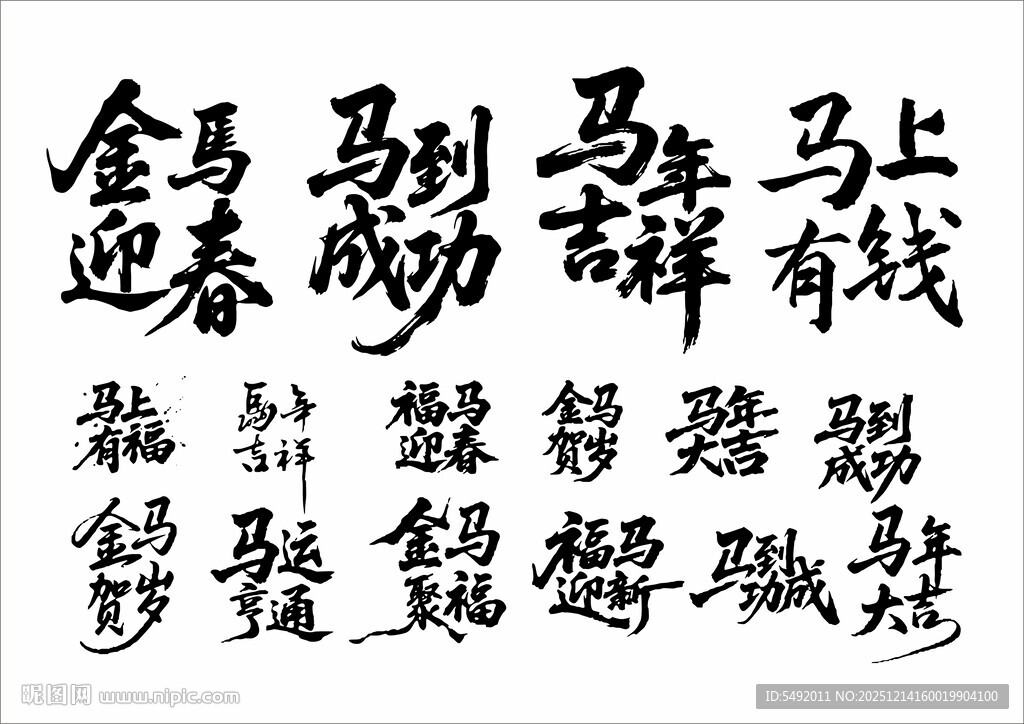 金馬
迎春
马到
成功
马年
吉祥
马上
有钱
马上
有福
馬年
吉祥
福马
迎春
金马
贺岁
马年
大吉
马到
成功
金马
贺岁
马运
亨通
金马
聚福
福马
迎新
马到
功成
马年
大吉
昵图网 www.nipic.com
ID:5492011 NO:20251214160019904100